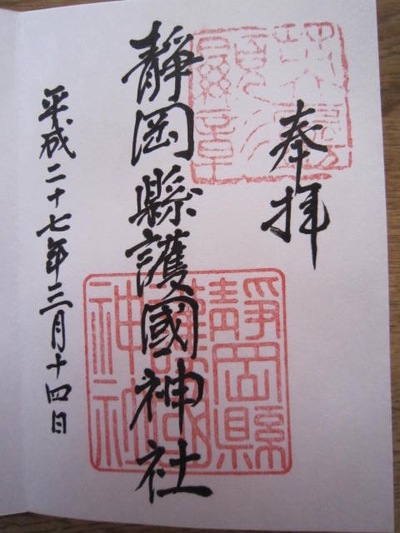 奉拝
靜岡縣護國神社
平成二十七年三月十四日
靜岡縣
護國
神社